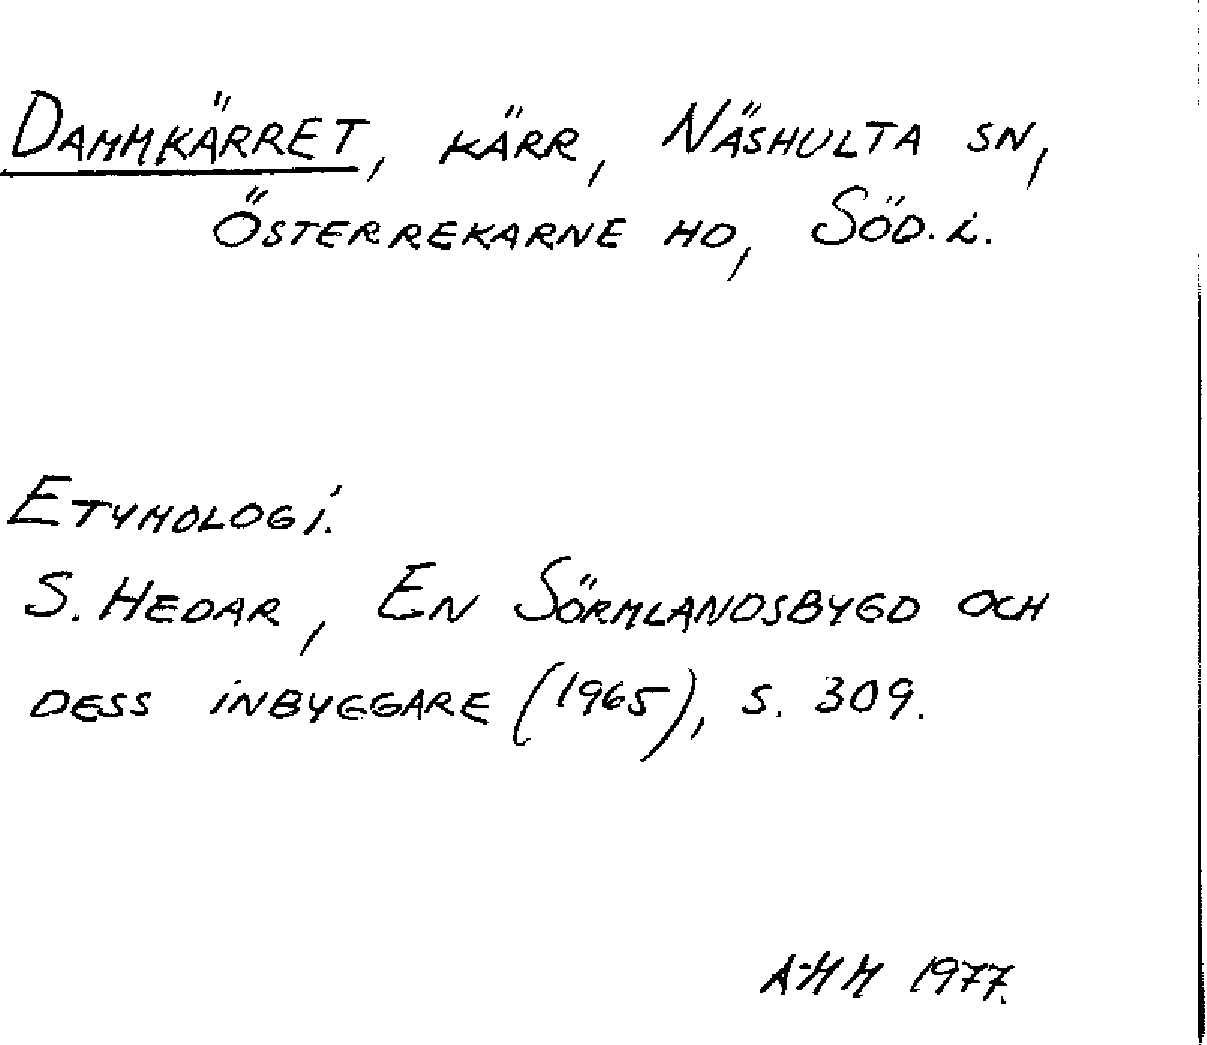 DAMMKÄRRET, KÄRR, NÄSHULTA SN,
ÖSTERREKARNE HD, SÖD.L.
ETYMOLOGI.
S. HEDAR, EN SÖRMLANDSBYGD OCH
DESS INBYGGARE (1965), S. 309.
A-MM 1977.